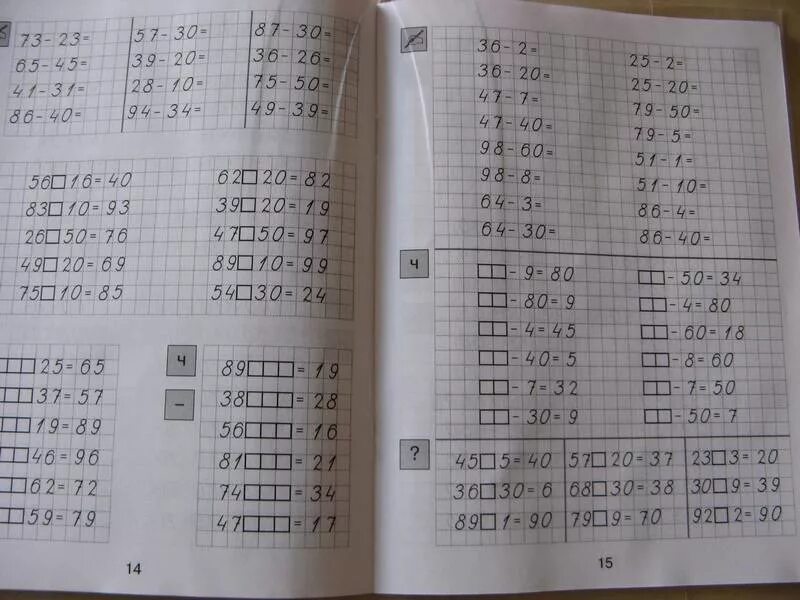 73-23= 57-30= 87-30=
65-45= 39-20= 36-26=
41-31= 28-10= 75-50=
86-40= 94-34= 49-39=
56□16=40 62□20=82
83□10=93 39□20=19
26□50=76 47□50=97
49□20=69 89□10=99
75□10=85 54□30=24
□□□25=65
□□□37=57
□□19=89
□□46=96
□□62=72
□□59=79
ч
–
89□□□=19
38□□□=28
56□□□=16
81□□□=21
74□□□=34
47□□□=17
14
36-2= 25-2=
36-20= 25-20=
47-7= 79-50=
47-40= 79-5=
98-60= 51-1=
98-8= 51-10=
64-3= 86-4=
64-30= 86-40=
ч
□□-9=80 □□-50=34
□□-80=9 □□-4=80
□□-4=45 □□-60=18
□□-40=5 □□-8=60
□□-7=32 □□-7=50
□□-30=9 □□-50=7
?
45□5=40 57□20=37 23□3=20
36□30=6 68□30=38 30□9=39
89□1=90 79□9=70 92□2=90
15